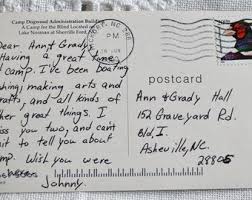 Camp Dogwood Administration Building
A Camp for the Blind Located on
Lake Norman at Sherrills Ford,
Dear Ann & Grady,
Having a great time
camp. I've been boating
fishing, making arts and
crafts, and all kinds of
other great things. I
miss you two, and can't
wait to tell you about
camp. Wish you were
here.
Johnny
NC
PM
postcard
Ann & Grady Hall
152 Graveyard Rd.
Bld, I.
Asheville, NC
28805